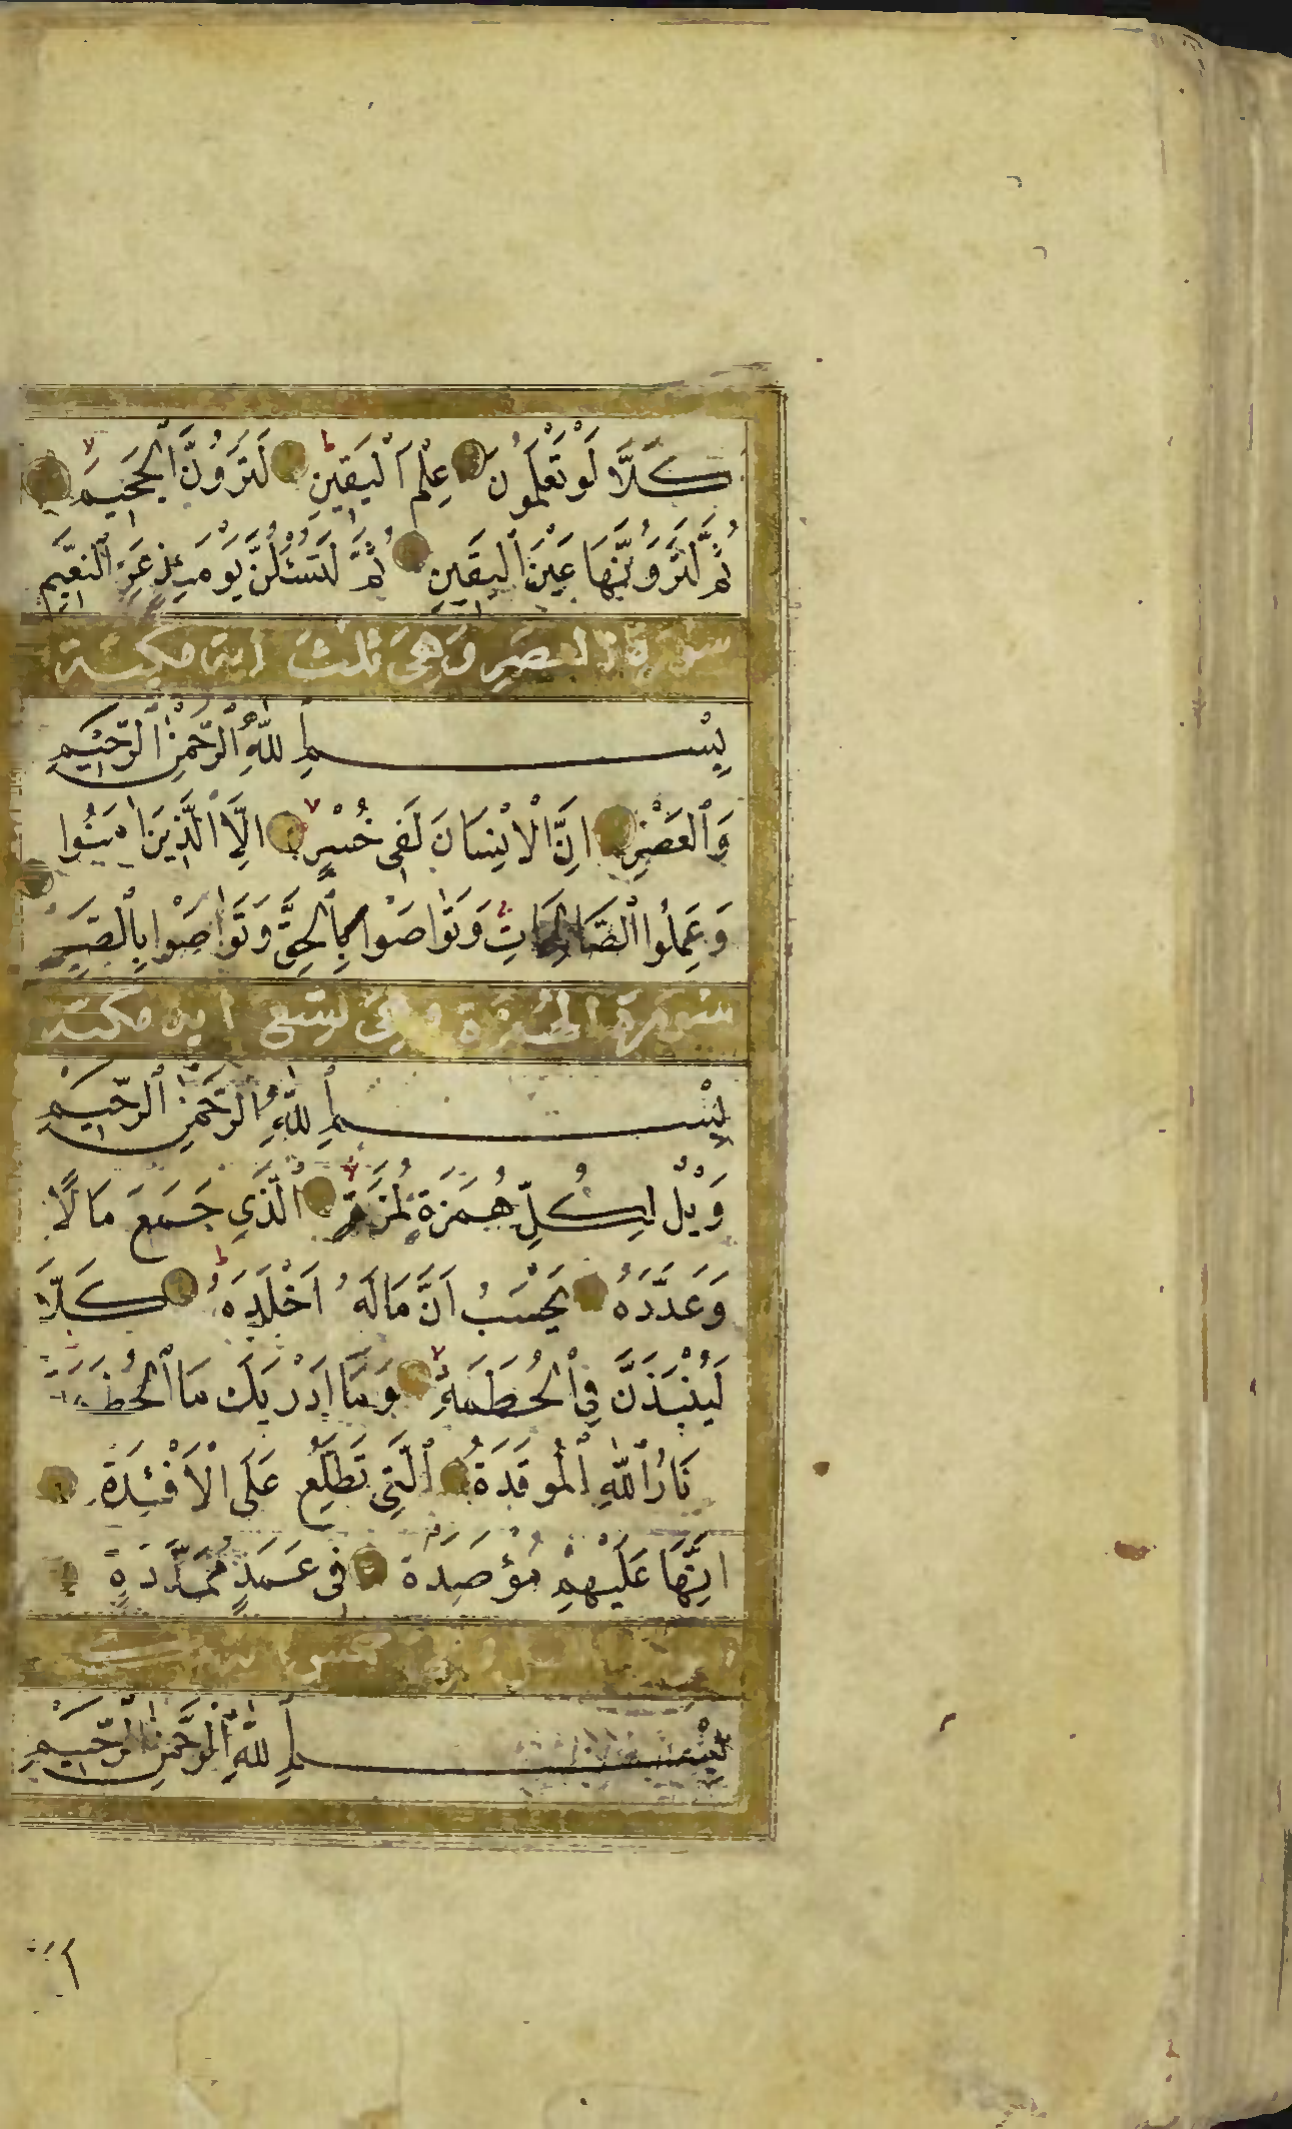 كَلَّا لَوْ تَعْلَمُونَ عِلْمَ ٱلْيَقِينِ ط لَتَرَوُنَّ ٱلْجَحِيمَ لا
ثُمَّ لَتَرَوُنَّهَا عَيْنَ ٱلْيَقِينِ ثُمَّ لَتُسْئَلُنَّ يَوْمَئِذٍ عَنِ ٱلنَّعِيمِ
سورة العصر وهي ثلث اية مكية
بِسْمِ ٱللَّهِ ٱلرَّحْمٰنِ ٱلرَّحِيمِ
وَٱلْعَصْرِ اِنَّ ٱلْاِنْسَانَ لَفِى خُسْرٍ لا اِلَّا ٱلَّذِينَ اٰمَنُوا
وَعَمِلُوا ٱلصَّالِحَاتِ وَتَوَاصَوْا بِٱلْحَقِّ وَتَوَاصَوْا بِٱلصَّبْرِ
سورة الهمزة وهي تسع اية مكية
بِسْمِ ٱللَّهِ ٱلرَّحْمٰنِ ٱلرَّحِيمِ
وَيْلٌ لِكُلِّ هُمَزَةٍ لُمَزَةٍ لا ٱلَّذِي جَمَعَ مَالًا
وَعَدَّدَهُ يَحْسَبُ اَنَّ مَالَهُ اَخْلَدَهُ ط كَلَّا
لَيُنْبَذَنَّ فِي ٱلْحُطَمَةِ لا وَمَا اَدْرٰيكَ مَا ٱلْحُطَمَةُ
نَارُ ٱللَّهِ ٱلْمُوقَدَةُ ٱلَّتِى تَطَّلِعُ عَلَى ٱلْاَفْئِدَةِ
اِنَّهَا عَلَيْهِمْ مُؤْصَدَةٌ فِى عَمَدٍ مُمَدَّدَةٍ
بِسْمِ ٱللَّهِ ٱلرَّحْمٰنِ ٱلرَّحِيمِ